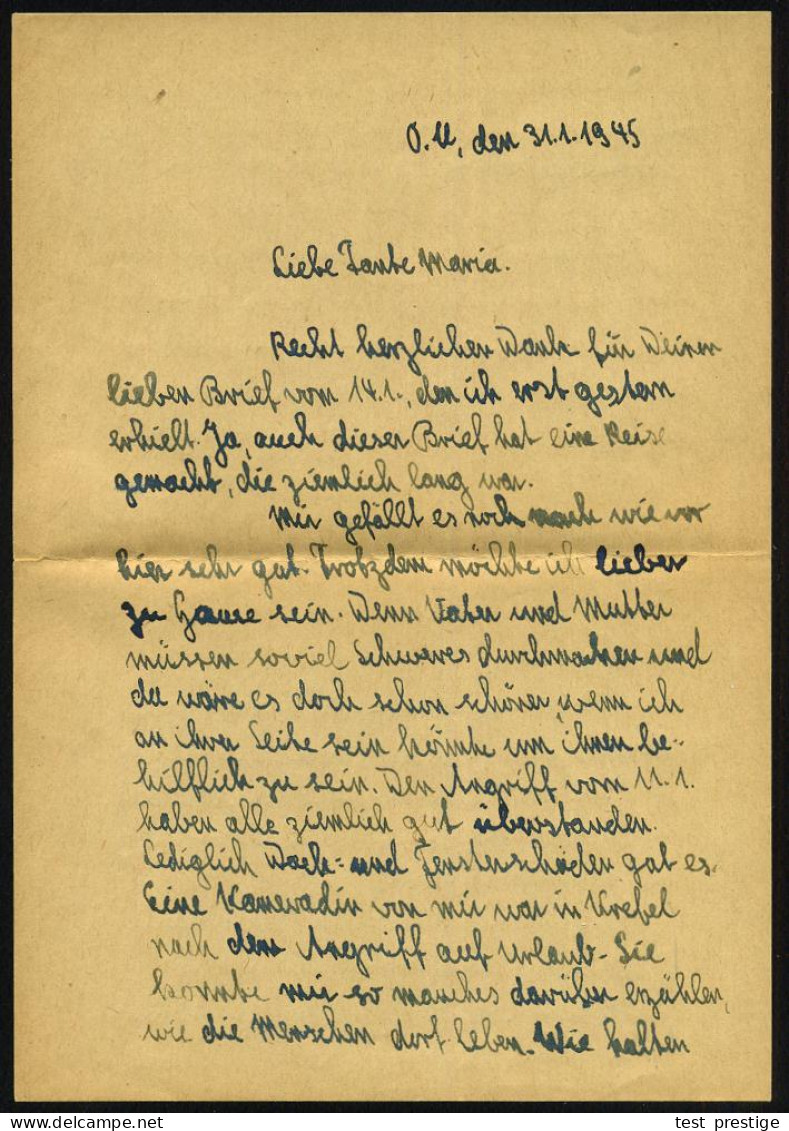 O.U, den 31.1.1945
Liebe Tante Maria.
Recht herzlichen Dank für Deinen
lieben Brief vom 14.1., den ich erst gestern
erhielt. Ja, auch dieser Brief hat eine Reise
gemacht, die ziemlich lang war.
Mir gefällt es noch nach wie vor
hier sehr gut. Trotzdem möchte ich lieber
zu Hause sein. Denn Vater und Mutter
müssen soviel Schweres durchmachen und
da wäre es doch schon schöner, wenn ich
an ihrer Seite sein könnte um ihnen be-
hilflich zu sein. Den Angriff vom 11.1.
haben alle ziemlich gut überstanden.
Lediglich Dach- und Fensterschäden gab es.
Eine Kameradin von mir war in Krefel
nach dem Angriff auf Urlaub. Sie
konnte mir so manches darüber erzählen,
wie die Menschen dort leben. Wie halten
test prestige